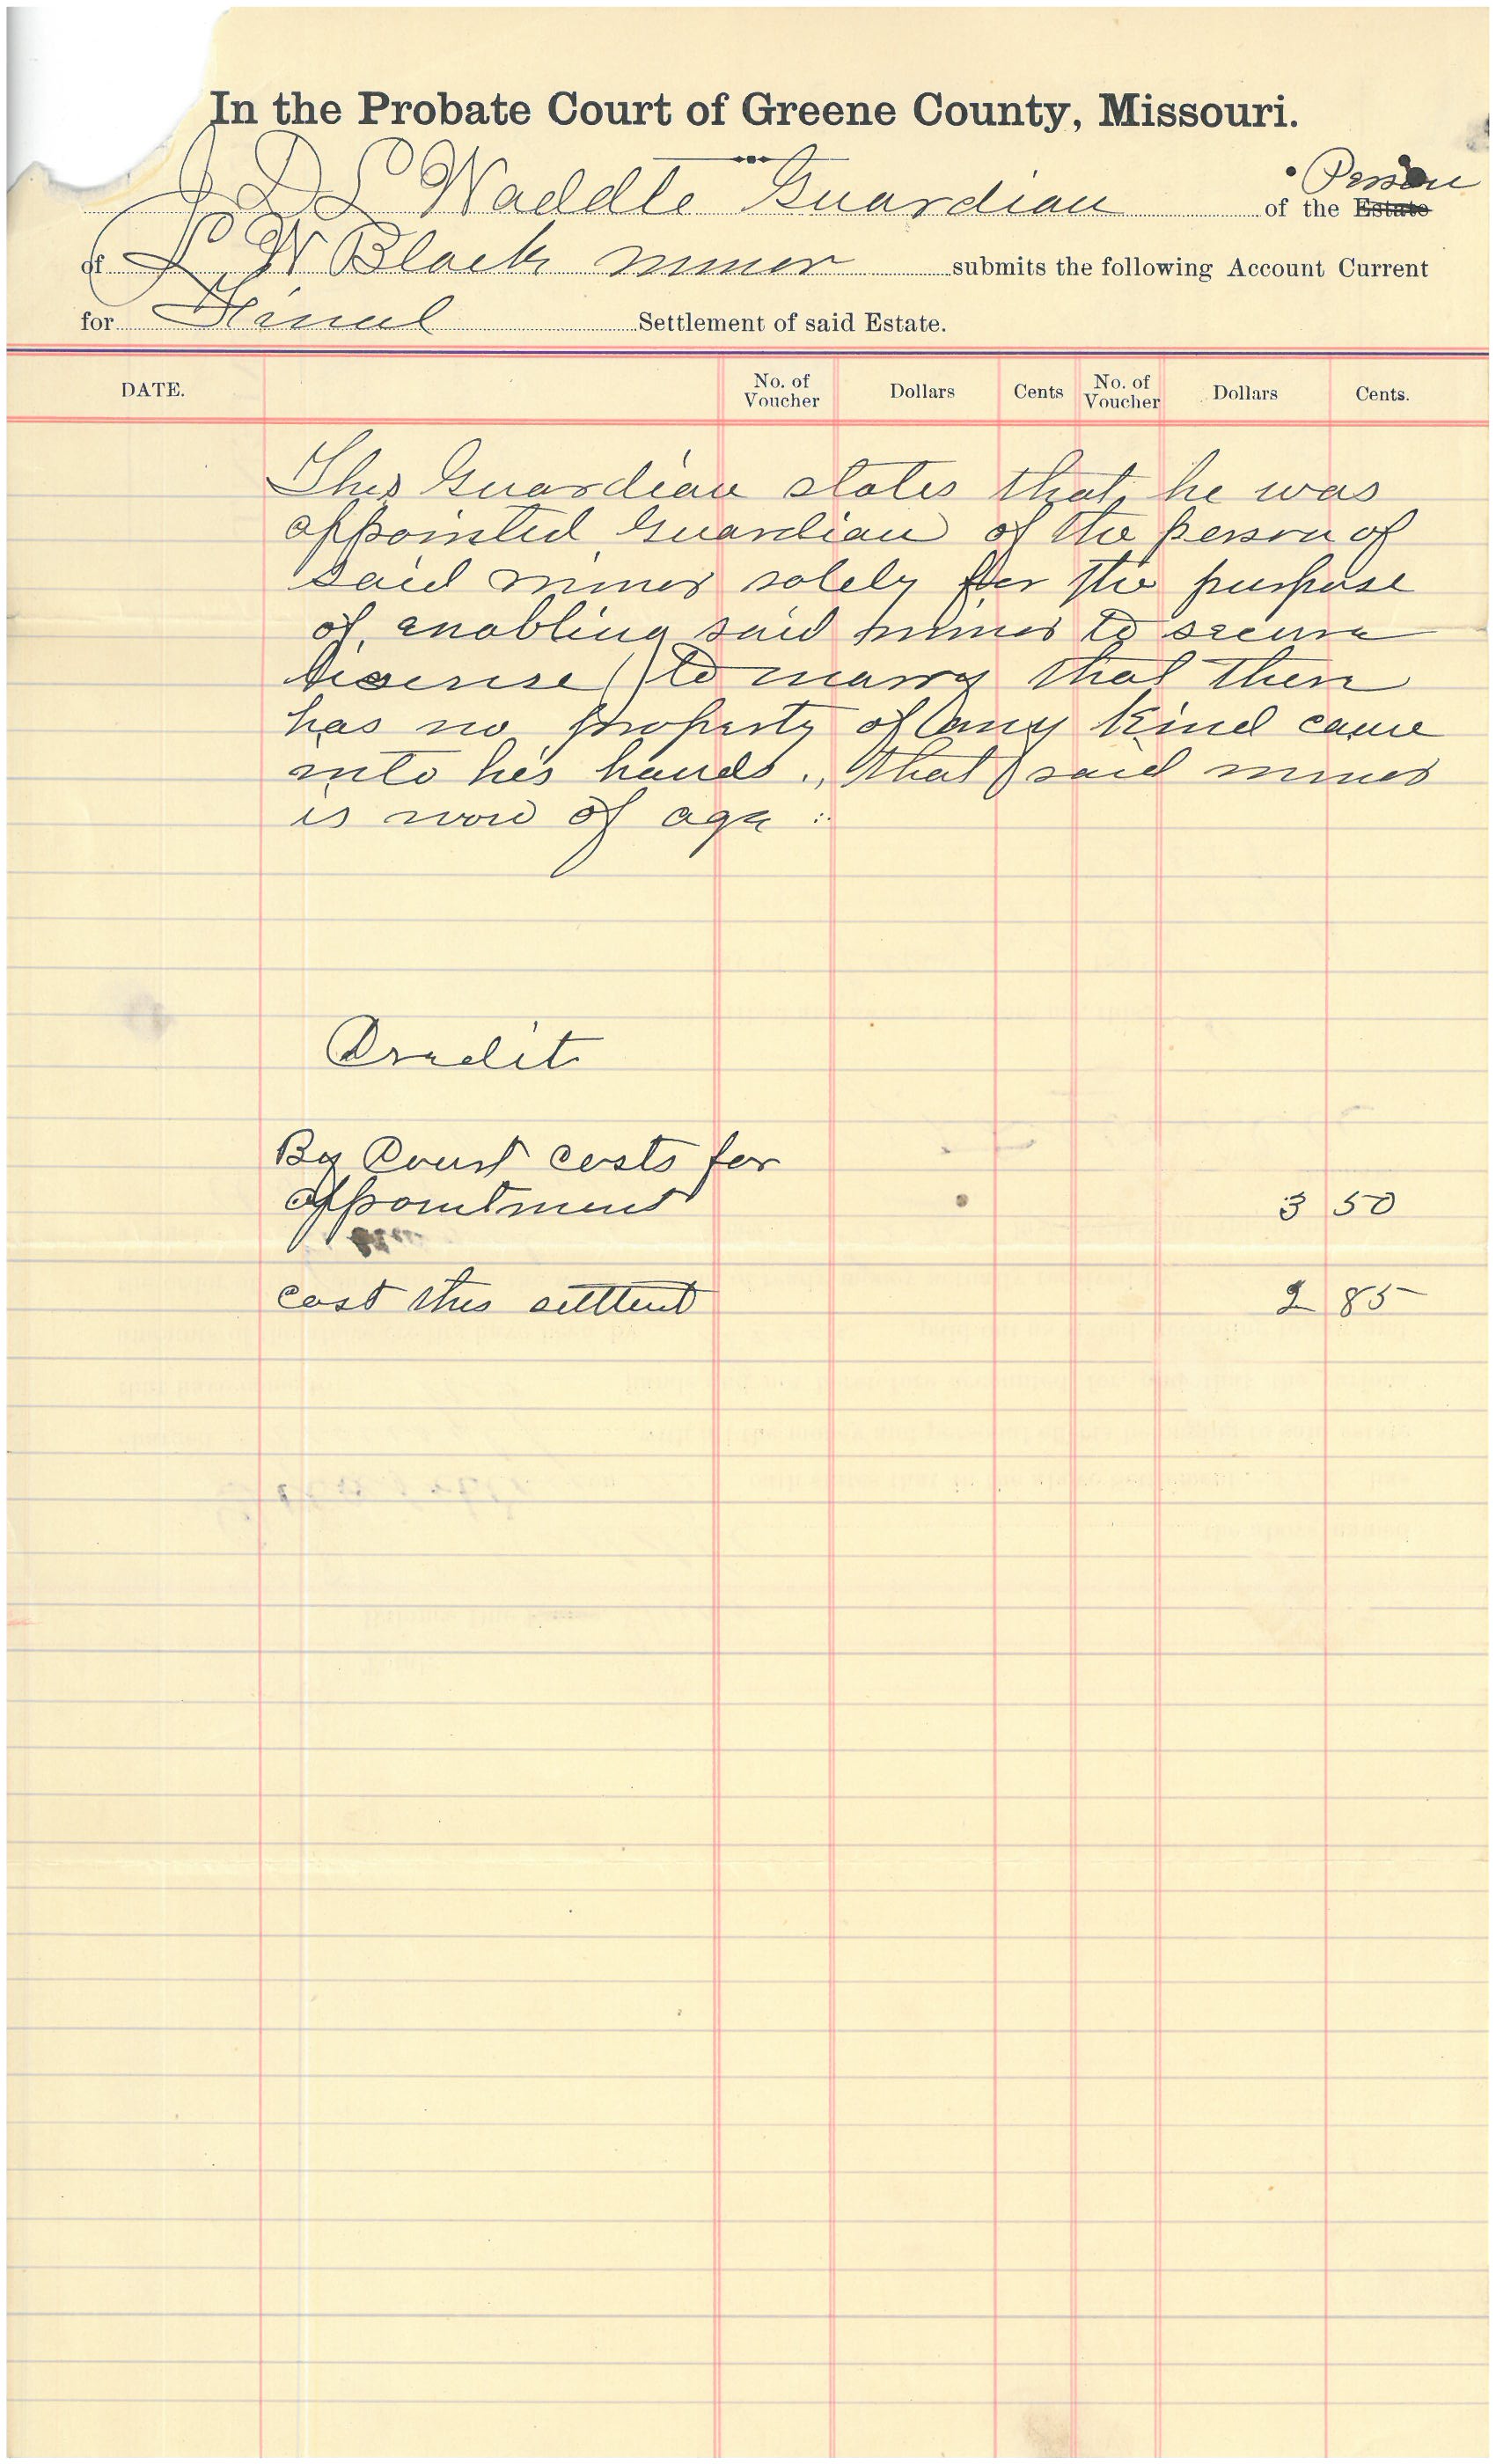 In the Probate Court of Greene County, Missouri.
J D S Waddle Guardian of the Estate Person
of S. W Black minor submits the following Account Current
for Final Settlement of said Estate.
DATE. No. of Voucher Dollars Cents No. of Voucher Dollars Cents.
This Guardian states that he was
appointed Guardian of the person of
said minor solely for the purpose
of enabling said minor to secure
license to marry that there
has no property of any kind came
into his hands., that said minor
is now of age
Credit
By Court costs for
appointment 3 50
cost this settlent 2 85